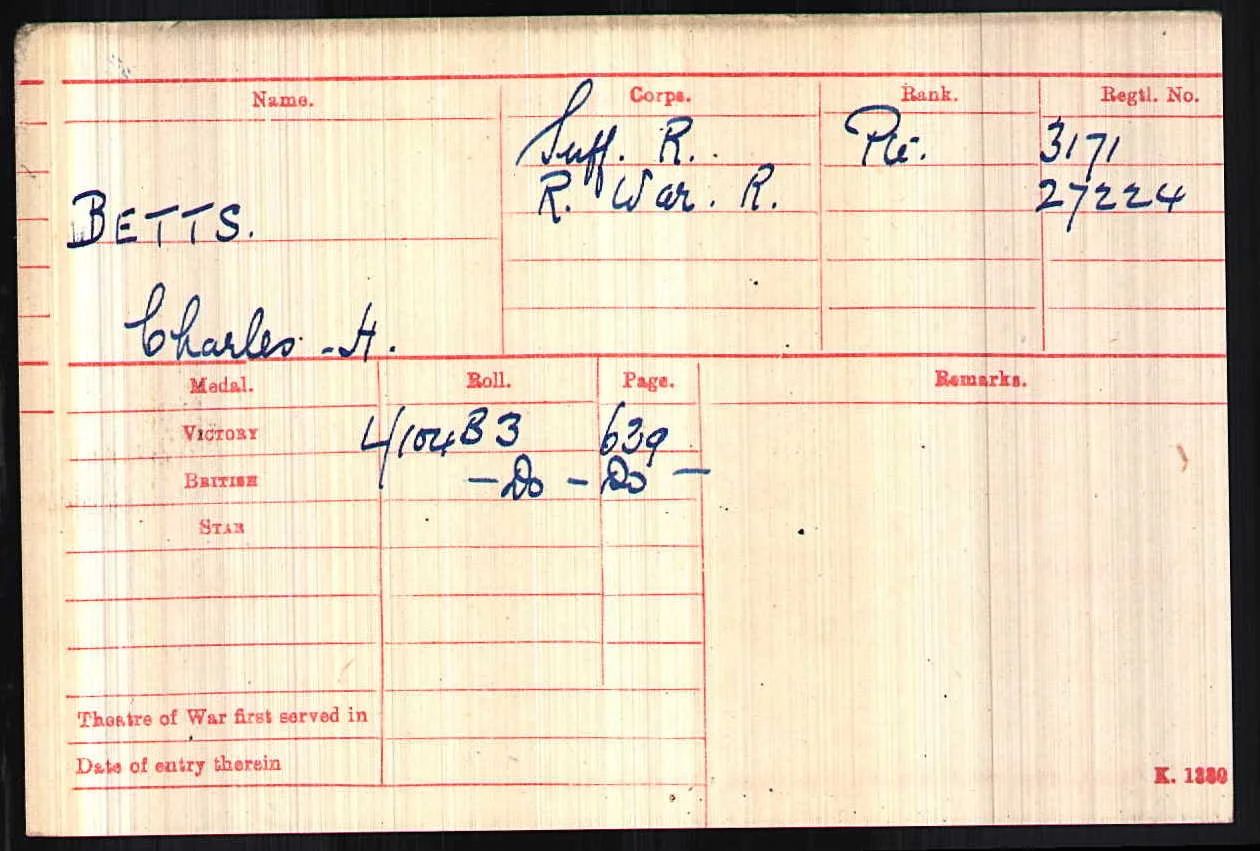 Name. Corps. Rank. Regtl. No.
Suff. R. Pte. 3171
R. War. R. 27224
BETTS.
Charles H.
Medal. Roll. Page. Remarks.
VICTORY 4/104B3 639
BRITISH -Do- Do-
STAR
Theatre of War first served in
Date of entry therein
K. 1380